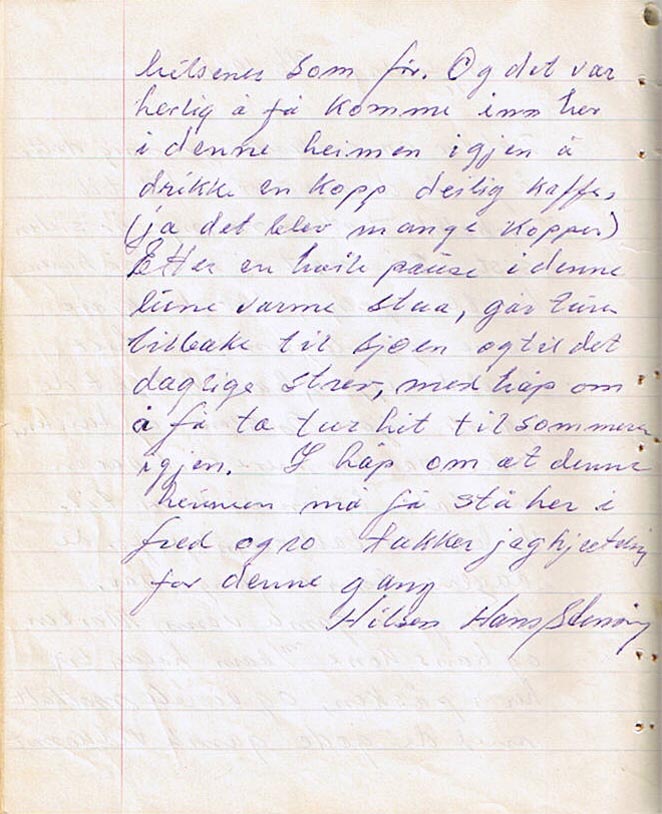 hilsener som før. Og det var
herlig å få komme inn her
i denne heimen igjen å
drikke en kopp deilig kaffe,
(ja det blev mange kopper)
Etter en hvile pause i denne
lune varme stua, går turen
tilbake til sjøen og til det
daglige strev, med håp om
å få ta tur hit til sommeren
igjen. I håp om at denne
heimen må få stå her i
fred og ro takker jag hjertelig
for denne gang
Hilsen Hans